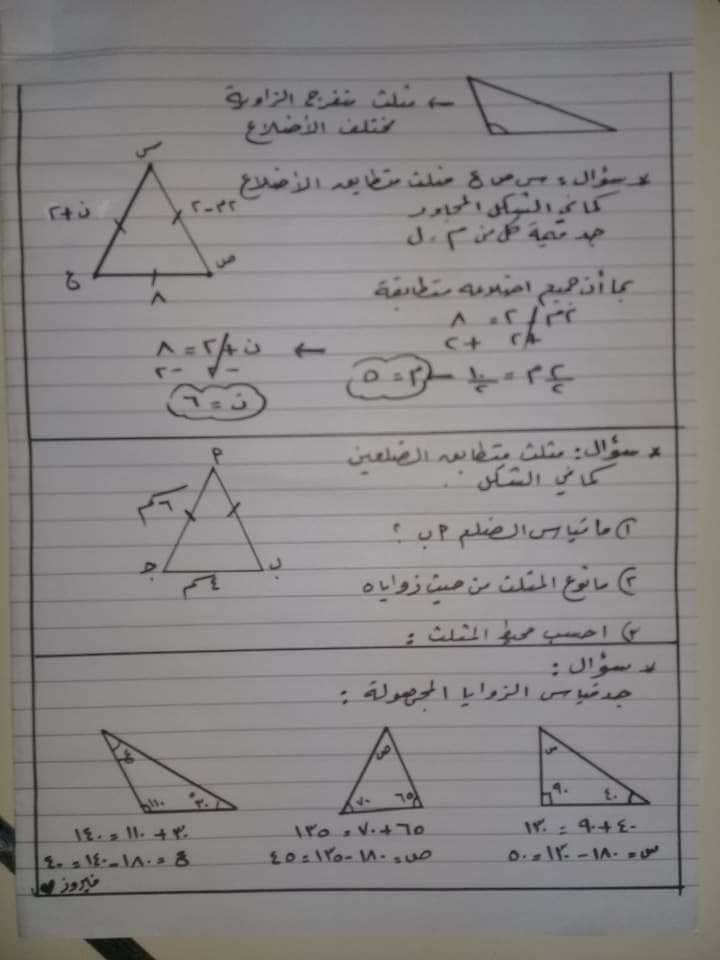 ← مثلث منفرج الزاوية
مختلف الأضلاع
* سؤال: س ص ع مثلث متطابق الأضلاع
كما في الشكل المجاور
جد قيمة كل من م، ن
س
ن+٢
٢م-٢
ع
ص
٨
بما أن جميع اضلاعه متطابقة
٢م - ٢ = ٨
+٢ +٢
٢م/٢ = ١٠/٢ ← م = ٥
← ن + ٢ = ٨
-٢ -٢
ن = ٦
* سؤال: مثلث متطابق الضلعين
كما في الشكل .
أ
٦سم
جـ
ب
٤سم
١) ما قياس الضلع أ ب ؟
٢) ما نوع المثلث من حيث زواياه
٣) احسب محيط المثلث :
* سؤال :
جد قياس الزوايا المجهولة :
س
٩٠
٤٠
ص
٧٠
٦٥
ع
١١٠
٣٠°
٤٠+٩٠ = ١٣٠
س = ١٨٠-١٣٠ = ٥٠
٦٥+٧٠ = ١٣٥
ص = ١٨٠-١٣٥ = ٤٥
٣٠+١١٠ = ١٤٠
ع = ١٨٠-١٤٠ = ٤٠
فيروز